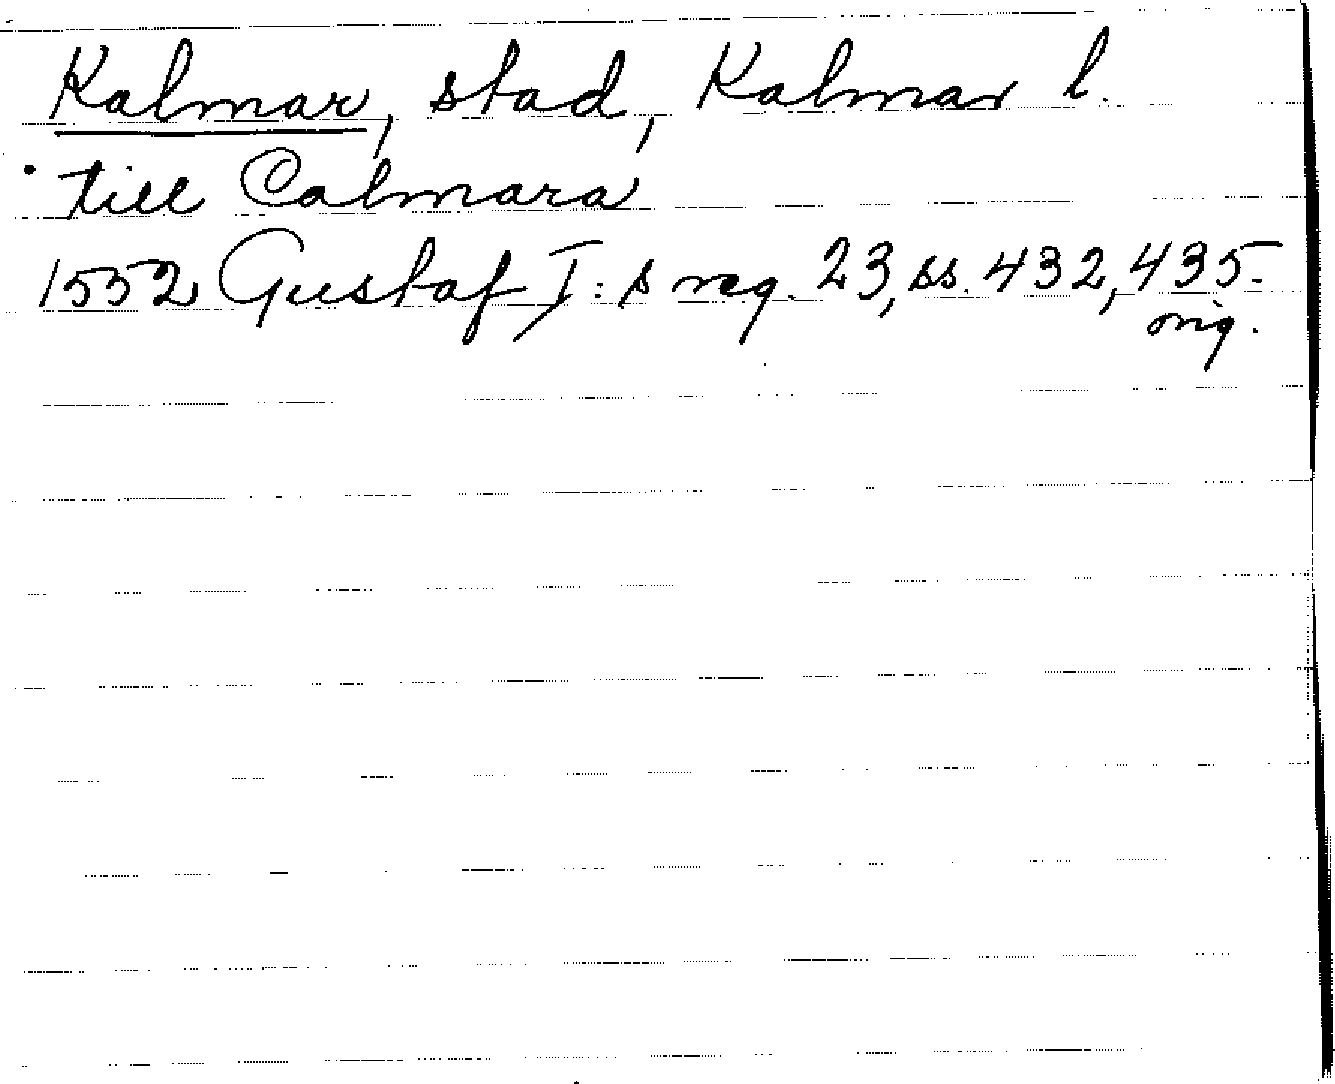 Kalmar, stad, Kalmar l.
till Calmara
1552 Gustaf I:s reg. 23, ss. 432, 435.
orig.